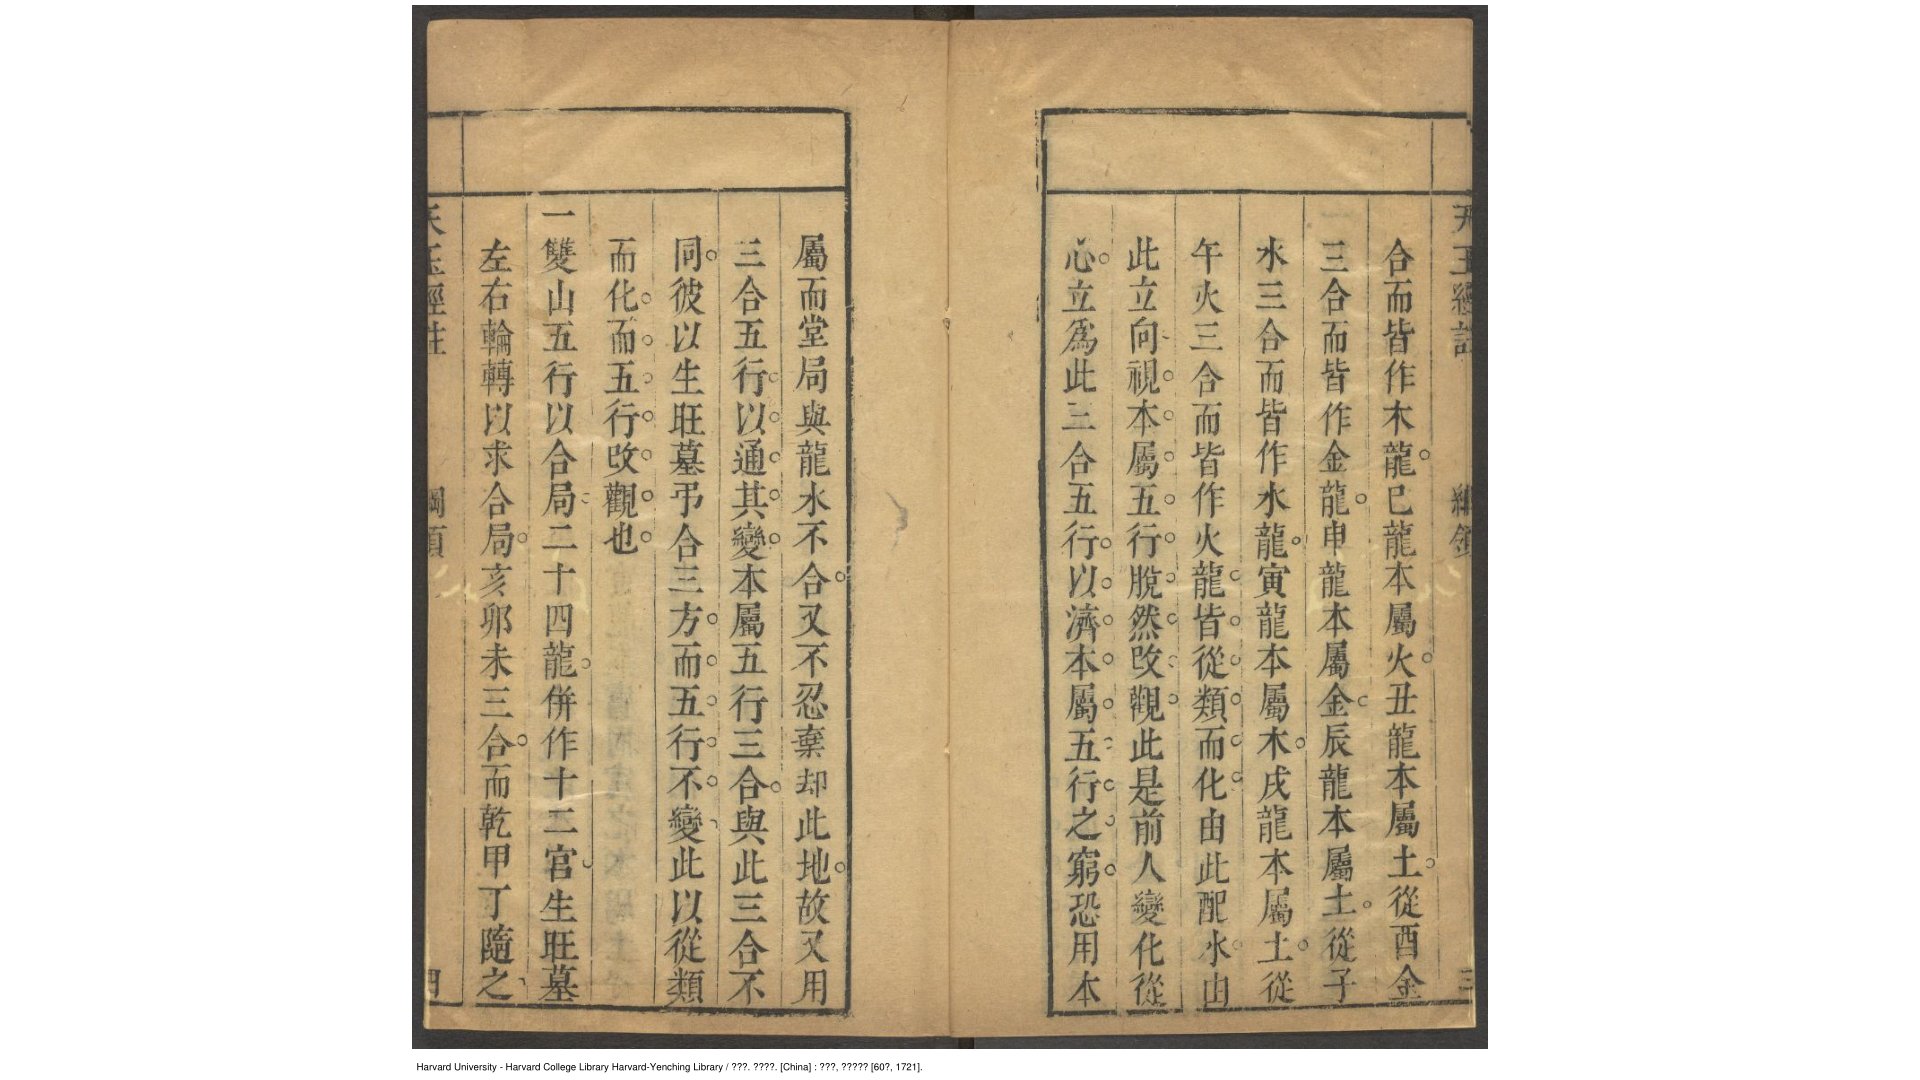 合而皆作木龍巳龍本屬火丑龍本屬土從酉金
三合而皆作金龍申龍本屬金辰龍本屬土從子
水三合而皆作水龍寅龍本屬木戌龍本屬土從
午火三合而皆作火龍皆從類而化由此配水由
此立向視本屬五行脫然改觀此是前人變化從
心立為此三合五行以濟本屬五行之窮恐用本
屬而堂局與龍水不合又不忍棄却此地故又用
三合五行以通其變本屬五行三合與此三合不
同彼以生旺墓弔合三方而五行不變此以從類
而化而五行改觀也
一雙山五行以合局二十四龍併作十二宮生旺墓
左右輪轉以求合局亥卯未三合而乾甲丁隨之
天玉經註 綱領 四
Harvard University - Harvard College Library Harvard-Yenching Library / ???. ????. [China] : ???, ????? [60?, 1721].